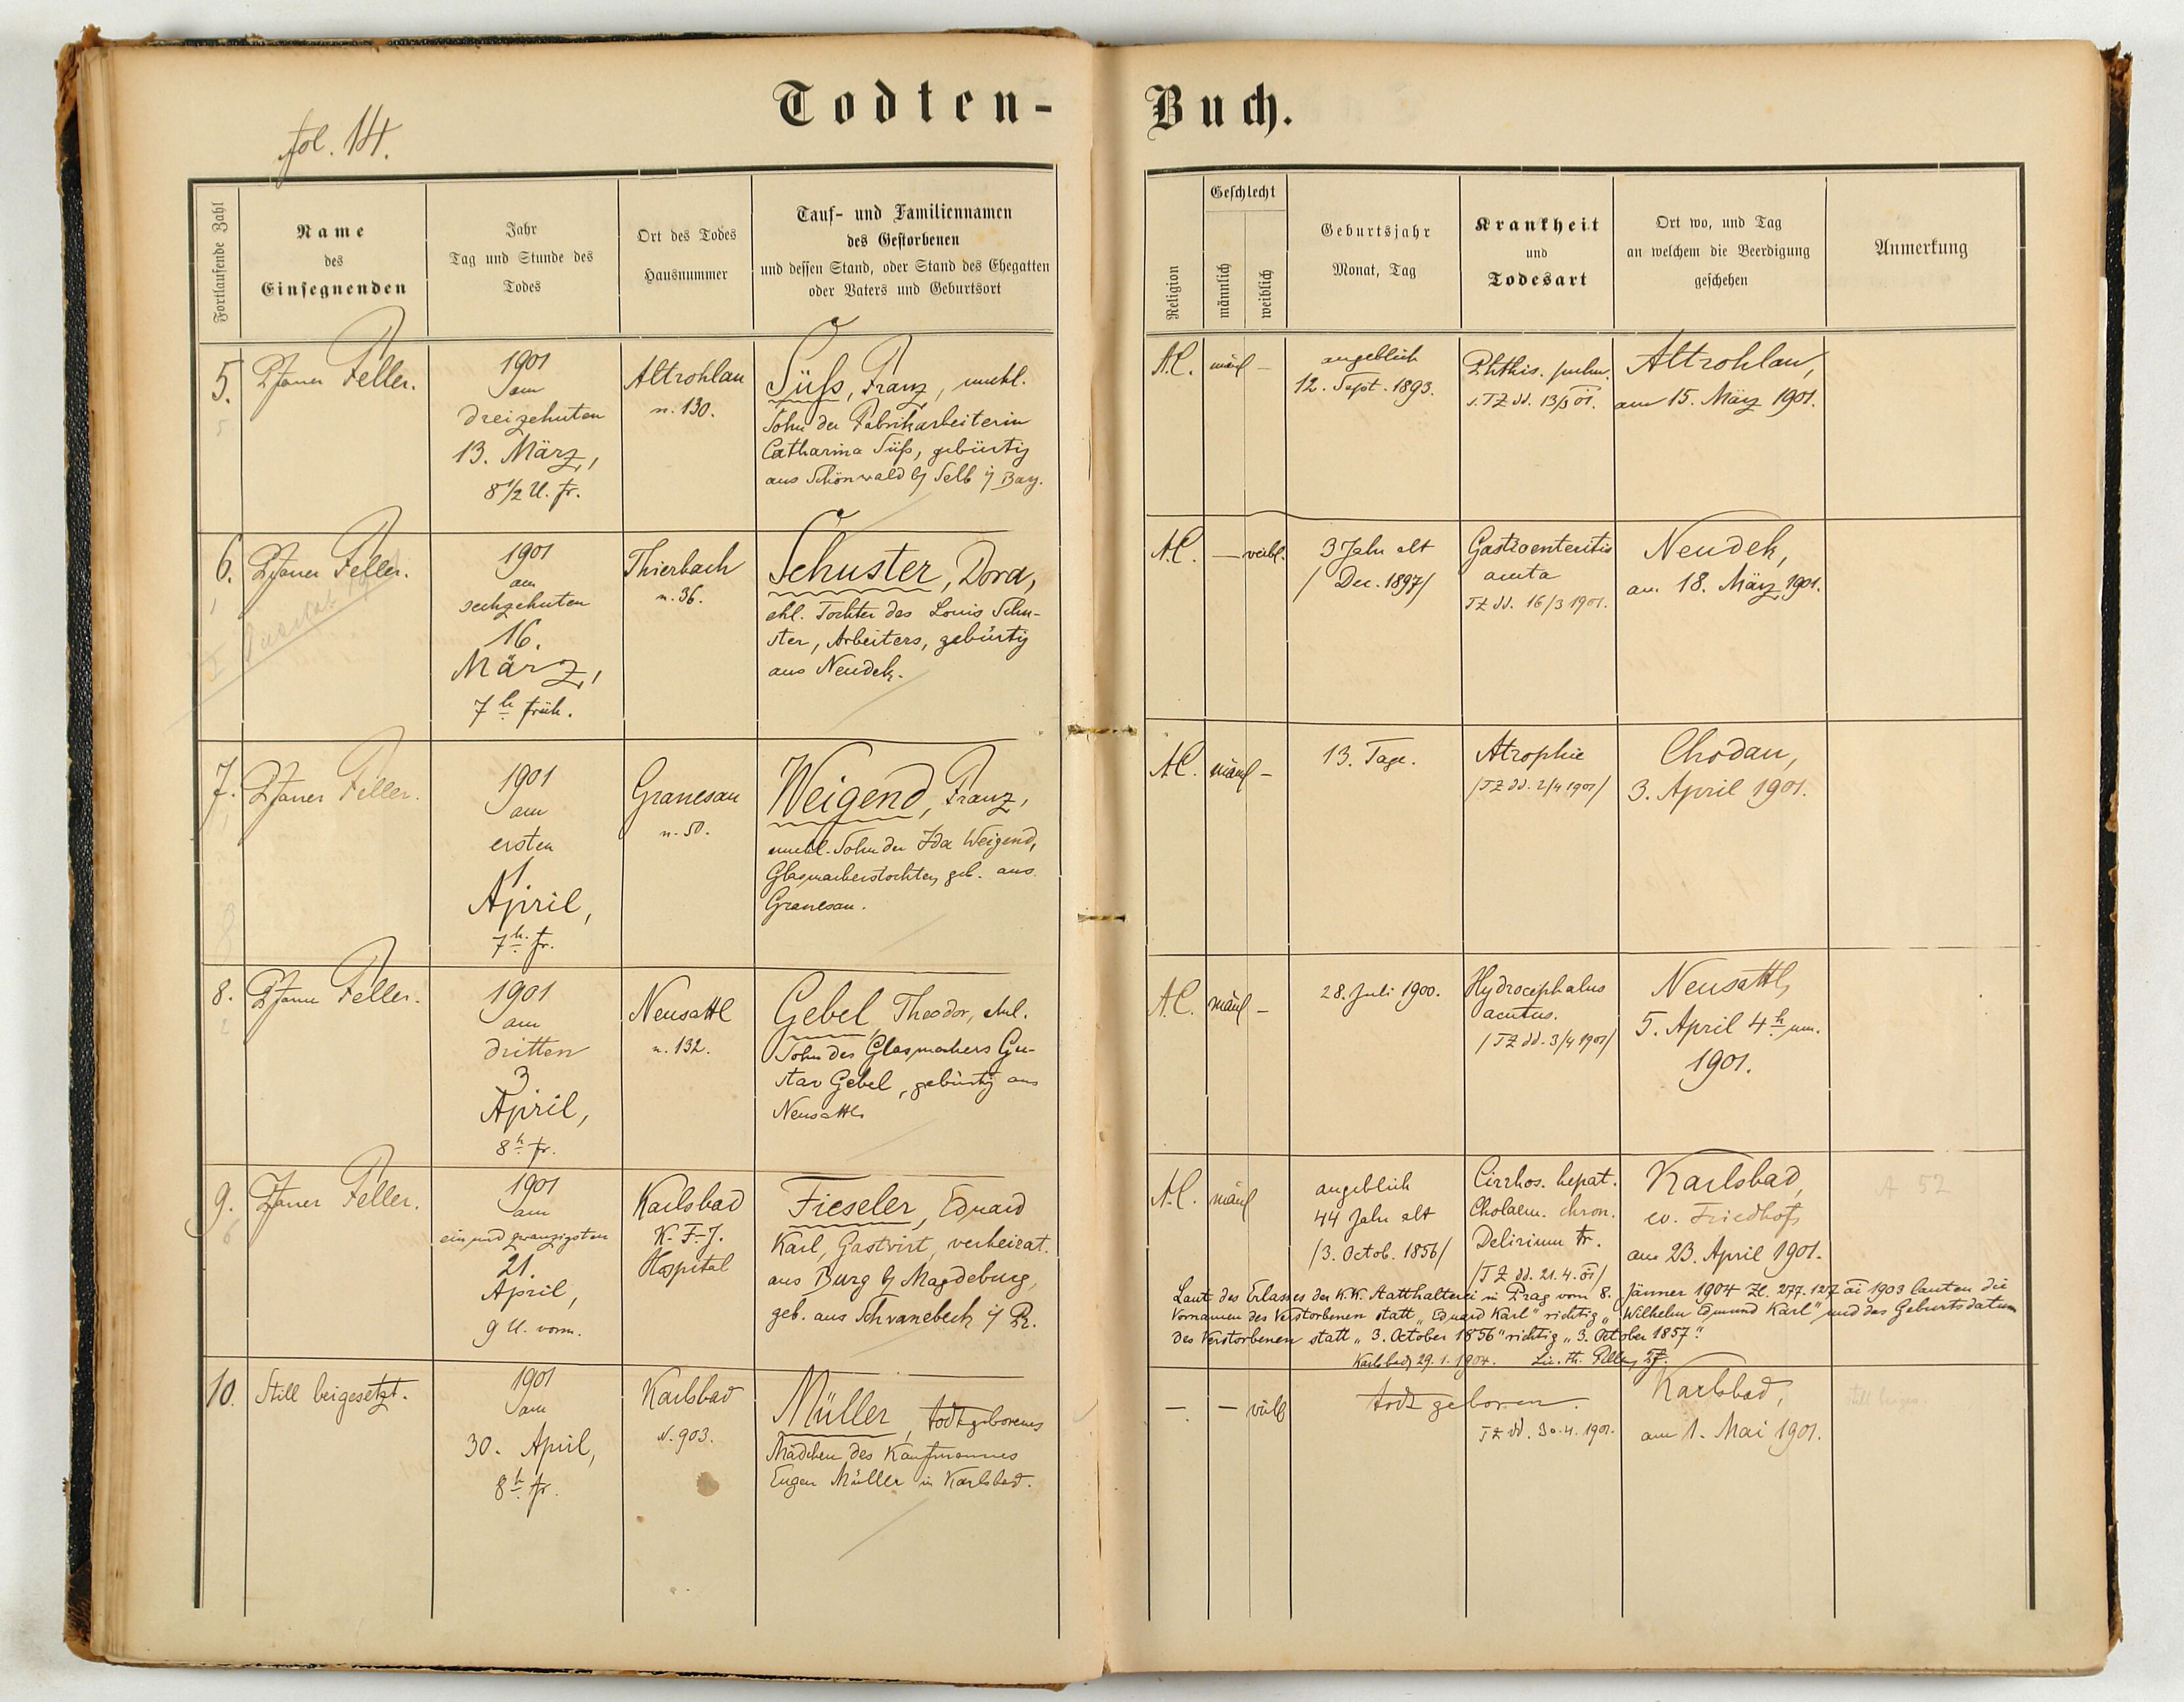 fol. 14.
Todten-Buch.
Fortlaufende Zahl
Name
des
Einsegnenden
Jahr
Tag und Stunde des
Todes
Ort des Todes
Hausnummer
Tauf- und Familiennamen
des Gestorbenen
und dessen Stand, oder Stand des Ehegatten
oder Vaters und Geburtsort
Religion
Geschlecht
männlich
weiblich
Geburtsjahr
Monat, Tag
Krankheit
und
Todesart
Ort wo, und Tag
an welchem die Beerdigung
geschehen
Anmerkung
5.
Pfarrer Feller.
1901
am
dreizehnten
13. März,
8 1/2 U. fr.
Altrohlau
n. 130.
Süß, Franz, unehl.
Sohn der Fabriksarbeiterin
Catharina Süß, gebürtig
aus Schönwald b/ Selb i/ Bay.
A.C.
männl
–
angeblich
12. Sept. 1893.
Phthis. pulm.
s. TZ dd. 13/3 01.
Altrohlau,
am 15. März 1901.
6.
Pfarrer Feller.
1901
am
sechzehnten
16.
März,
7 h früh.
Thierbach
n. 36.
Schuster, Dora,
ehl. Tochter des Louis Schu-
ster, Arbeiters, gebürtig
aus Neudek.
A.C.
–
weibl.
3 Jahr alt
/ Dec. 1897/
Gastroenteritis
acuta
TZ dd. 16/3 1901.
Neudek,
am 18. März 1901.
7.
Pfarrer Feller.
1901
am
ersten
1.
April,
7 h. fr.
Granesau
n. 50.
Weigend, Franz,
unehl. Sohn der Ida Weigend,
Glasmacherstochter, geb. aus
Granesau.
A.C.
männl
–
13. Tage.
Atrophie
/TZ dd. 2/4 1901/
Chodau,
3. April 1901.
8.
Pfarrer Feller.
1901
am
dritten
3
April,
8 h fr.
Neusattl
n. 132.
Gebel, Theodor, ehel.
Sohn des Glasmachers Gu-
stav Gebel, gebürtig aus
Neusattl.
A.C.
männl
–
28. Juli 1900.
Hydrocephalus
acutus.
/TZ dd. 3/4 1901/
Neusattl,
5. April 4 h nm.
1901.
9.
Pfarrer Feller.
1901
am
ein und zwanzigsten
21.
April,
9 U. vorm.
Karlsbad
K.-F.-J.
Hospital
Fieseler, Eduard
Karl, Gastwirt, verheirat.
aus Burg b/ Magdeburg,
geb. aus Schwanebeck i/ Pr.
A.C.
männl
angeblich
44 Jahr alt
/3. Octob. 1856/
Cirrhos. hepat.
Cholaem. chron.
Delirium tr.
/TZ dd. 21. 4. 01/
Karlsbad,
ev. Friedhof,
am 23. April 1901.
A 52
Laut des Erlasses der K.K. Statthalterei in Prag vom 8. Jänner 1904 Zl. 277.127 ai 1903 lauten die
Vornamen des Verstorbenen statt „Eduard Karl" richtig „Wilhelm Edmund Karl" und das Geburtsdatum
des Verstorbenen statt „3. October 1856" richtig „3. October 1857."
Karlsbad, 29. 1. 1904. Lic. th. Feller, Pf.
10.
Still beigesetzt.
1901
am
30. April,
8 h fr.
Karlsbad
N. 903.
Müller, todtgeborenes
Mädchen des Kaufmannes
Eugen Müller in Karlsbad.
–.
–
weibl
todt geboren.
TZ dd. 30. 4. 1901.
Karlsbad,
am 1. Mai 1901.